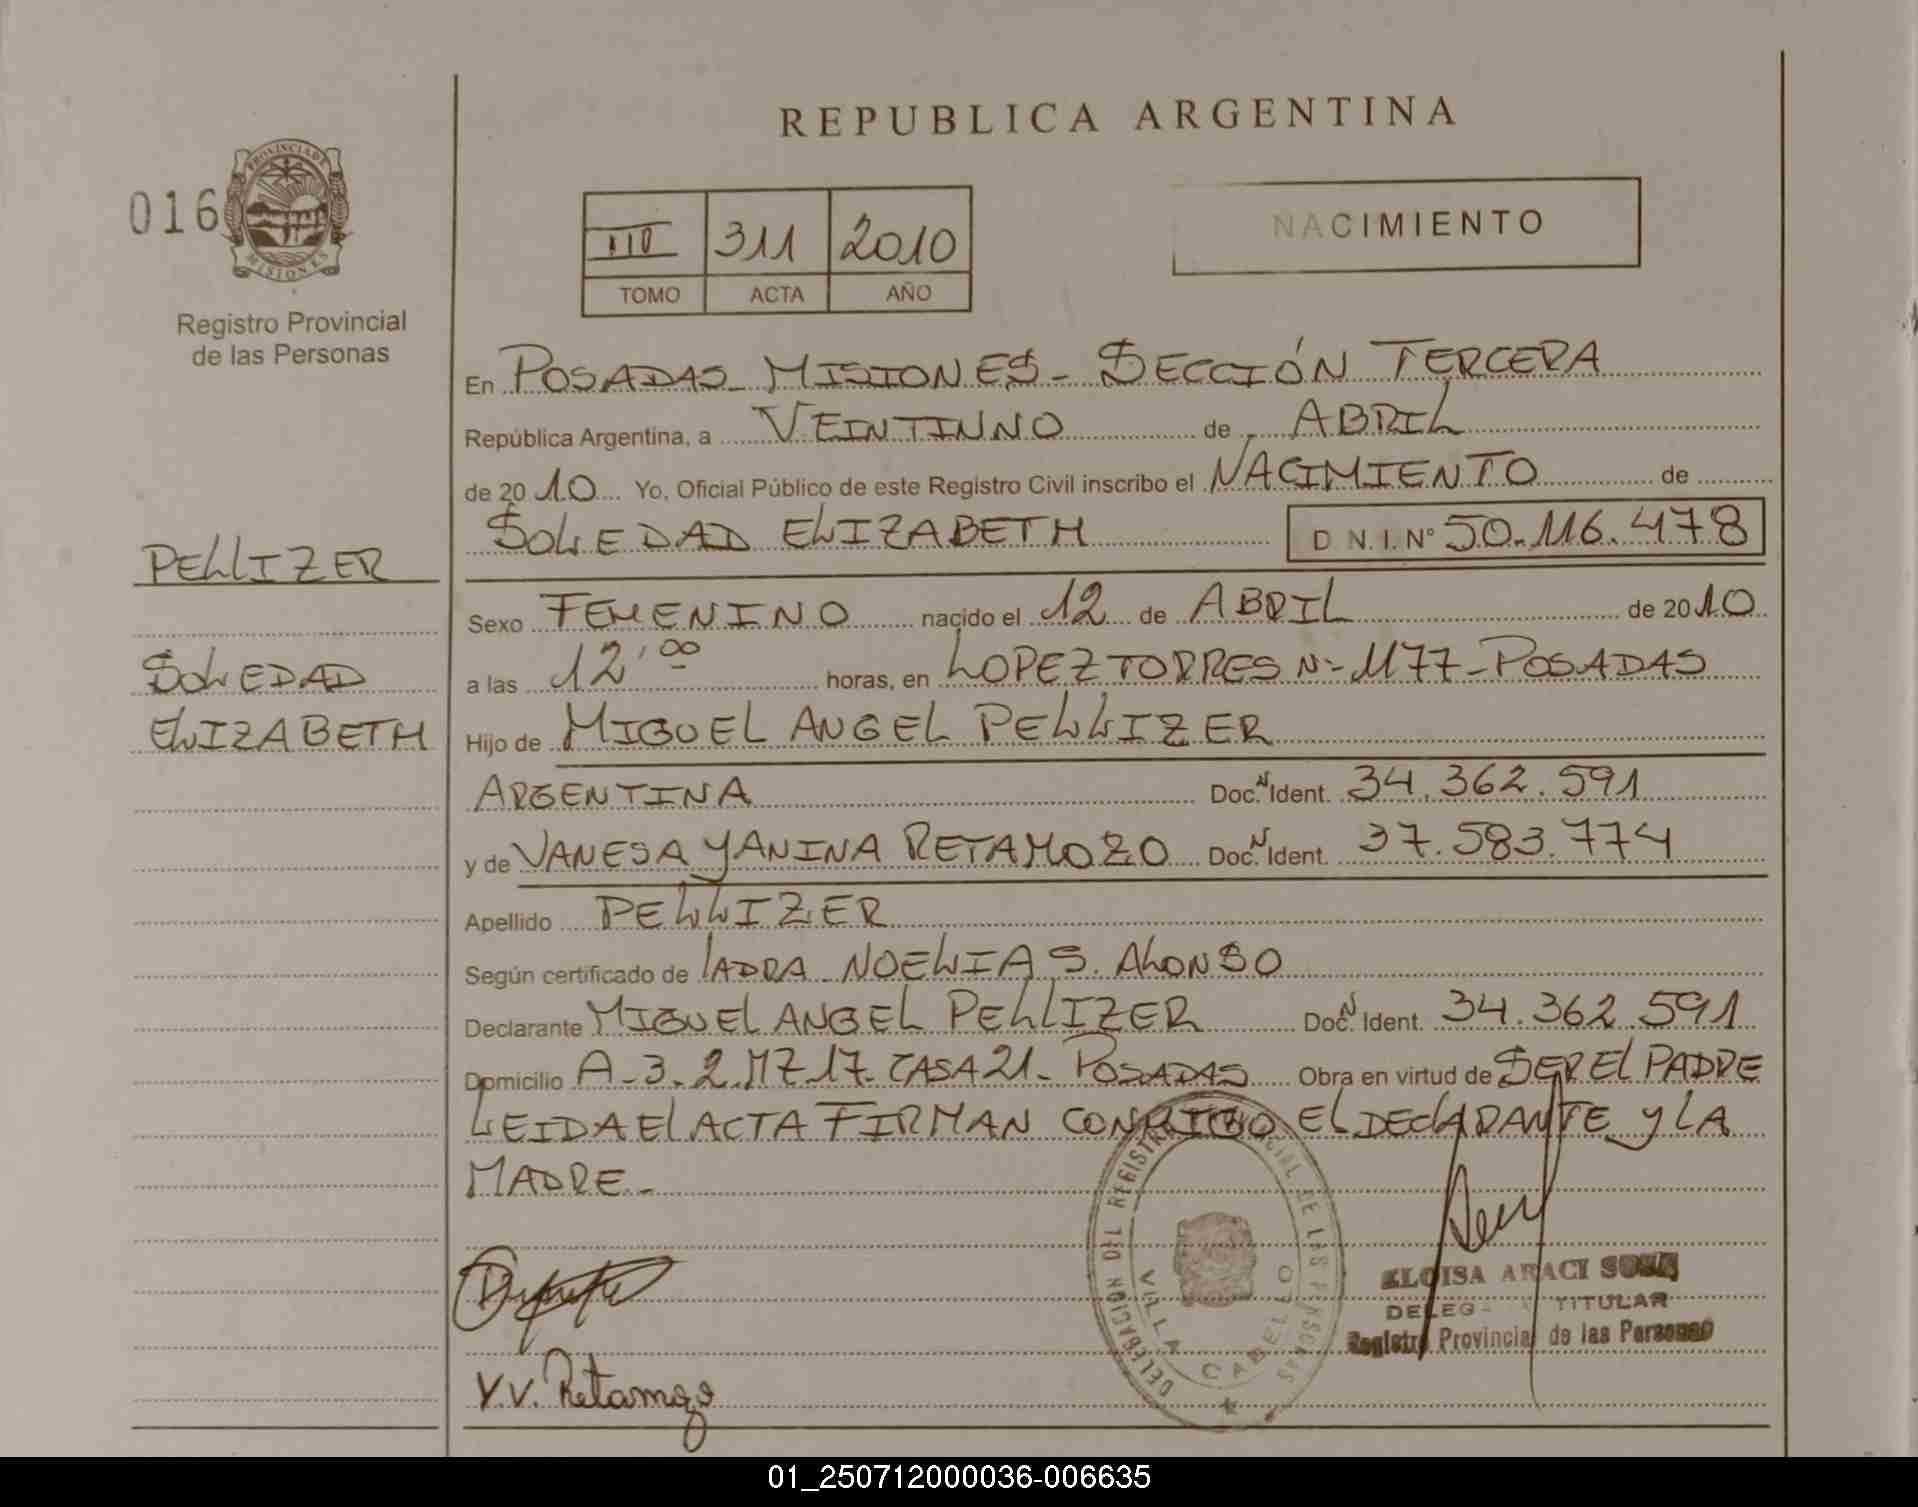 REPUBLICA ARGENTINA
016
PROVINCIA DE
MISIONES
Registro Provincial
de las Personas
III 311 2010
TOMO ACTA AÑO
NACIMIENTO
En POSADAS - MISIONES - SECCIÓN TERCERA
República Argentina, a VEINTIUNO de ABRIL
de 2010 Yo, Oficial Público de este Registro Civil inscribo el NACIMIENTO de
SOLEDAD ELIZABETH D N.I. Nº 50.116.478
PELLIZER
SOLEDAD
ELIZABETH
Sexo FEMENINO nacido el 12 de ABRIL de 2010
a las 12,00 horas, en LOPEZ TORRES Nº 1177 - POSADAS
Hijo de MIGUEL ANGEL PELLIZER
ARGENTINA Doc. N Ident. 34.362.591
y de VANESA YANINA RETAMOZO Doc. N Ident. 37.583.774
Apellido PELLIZER
Según certificado de NOELIA S. ALONSO
Declarante MIGUEL ANGEL PELLIZER Doc. N Ident. 34.362.591
Domicilio A-3.2.MZ 17-CASA 21- POSADAS Obra en virtud de SER EL PADRE
LEIDA EL ACTA FIRMAN CONMIGO EL DECLARANTE Y LA
MADRE-
DELEGACION DEL REGISTRO PROVINCIAL DE LAS PERSONAS
VILLA CABELLO
ELOISA ARACI SOSA
TITULAR
Registro Provincial de las Personas
Y.V. Retamozo
01_250712000036-006635